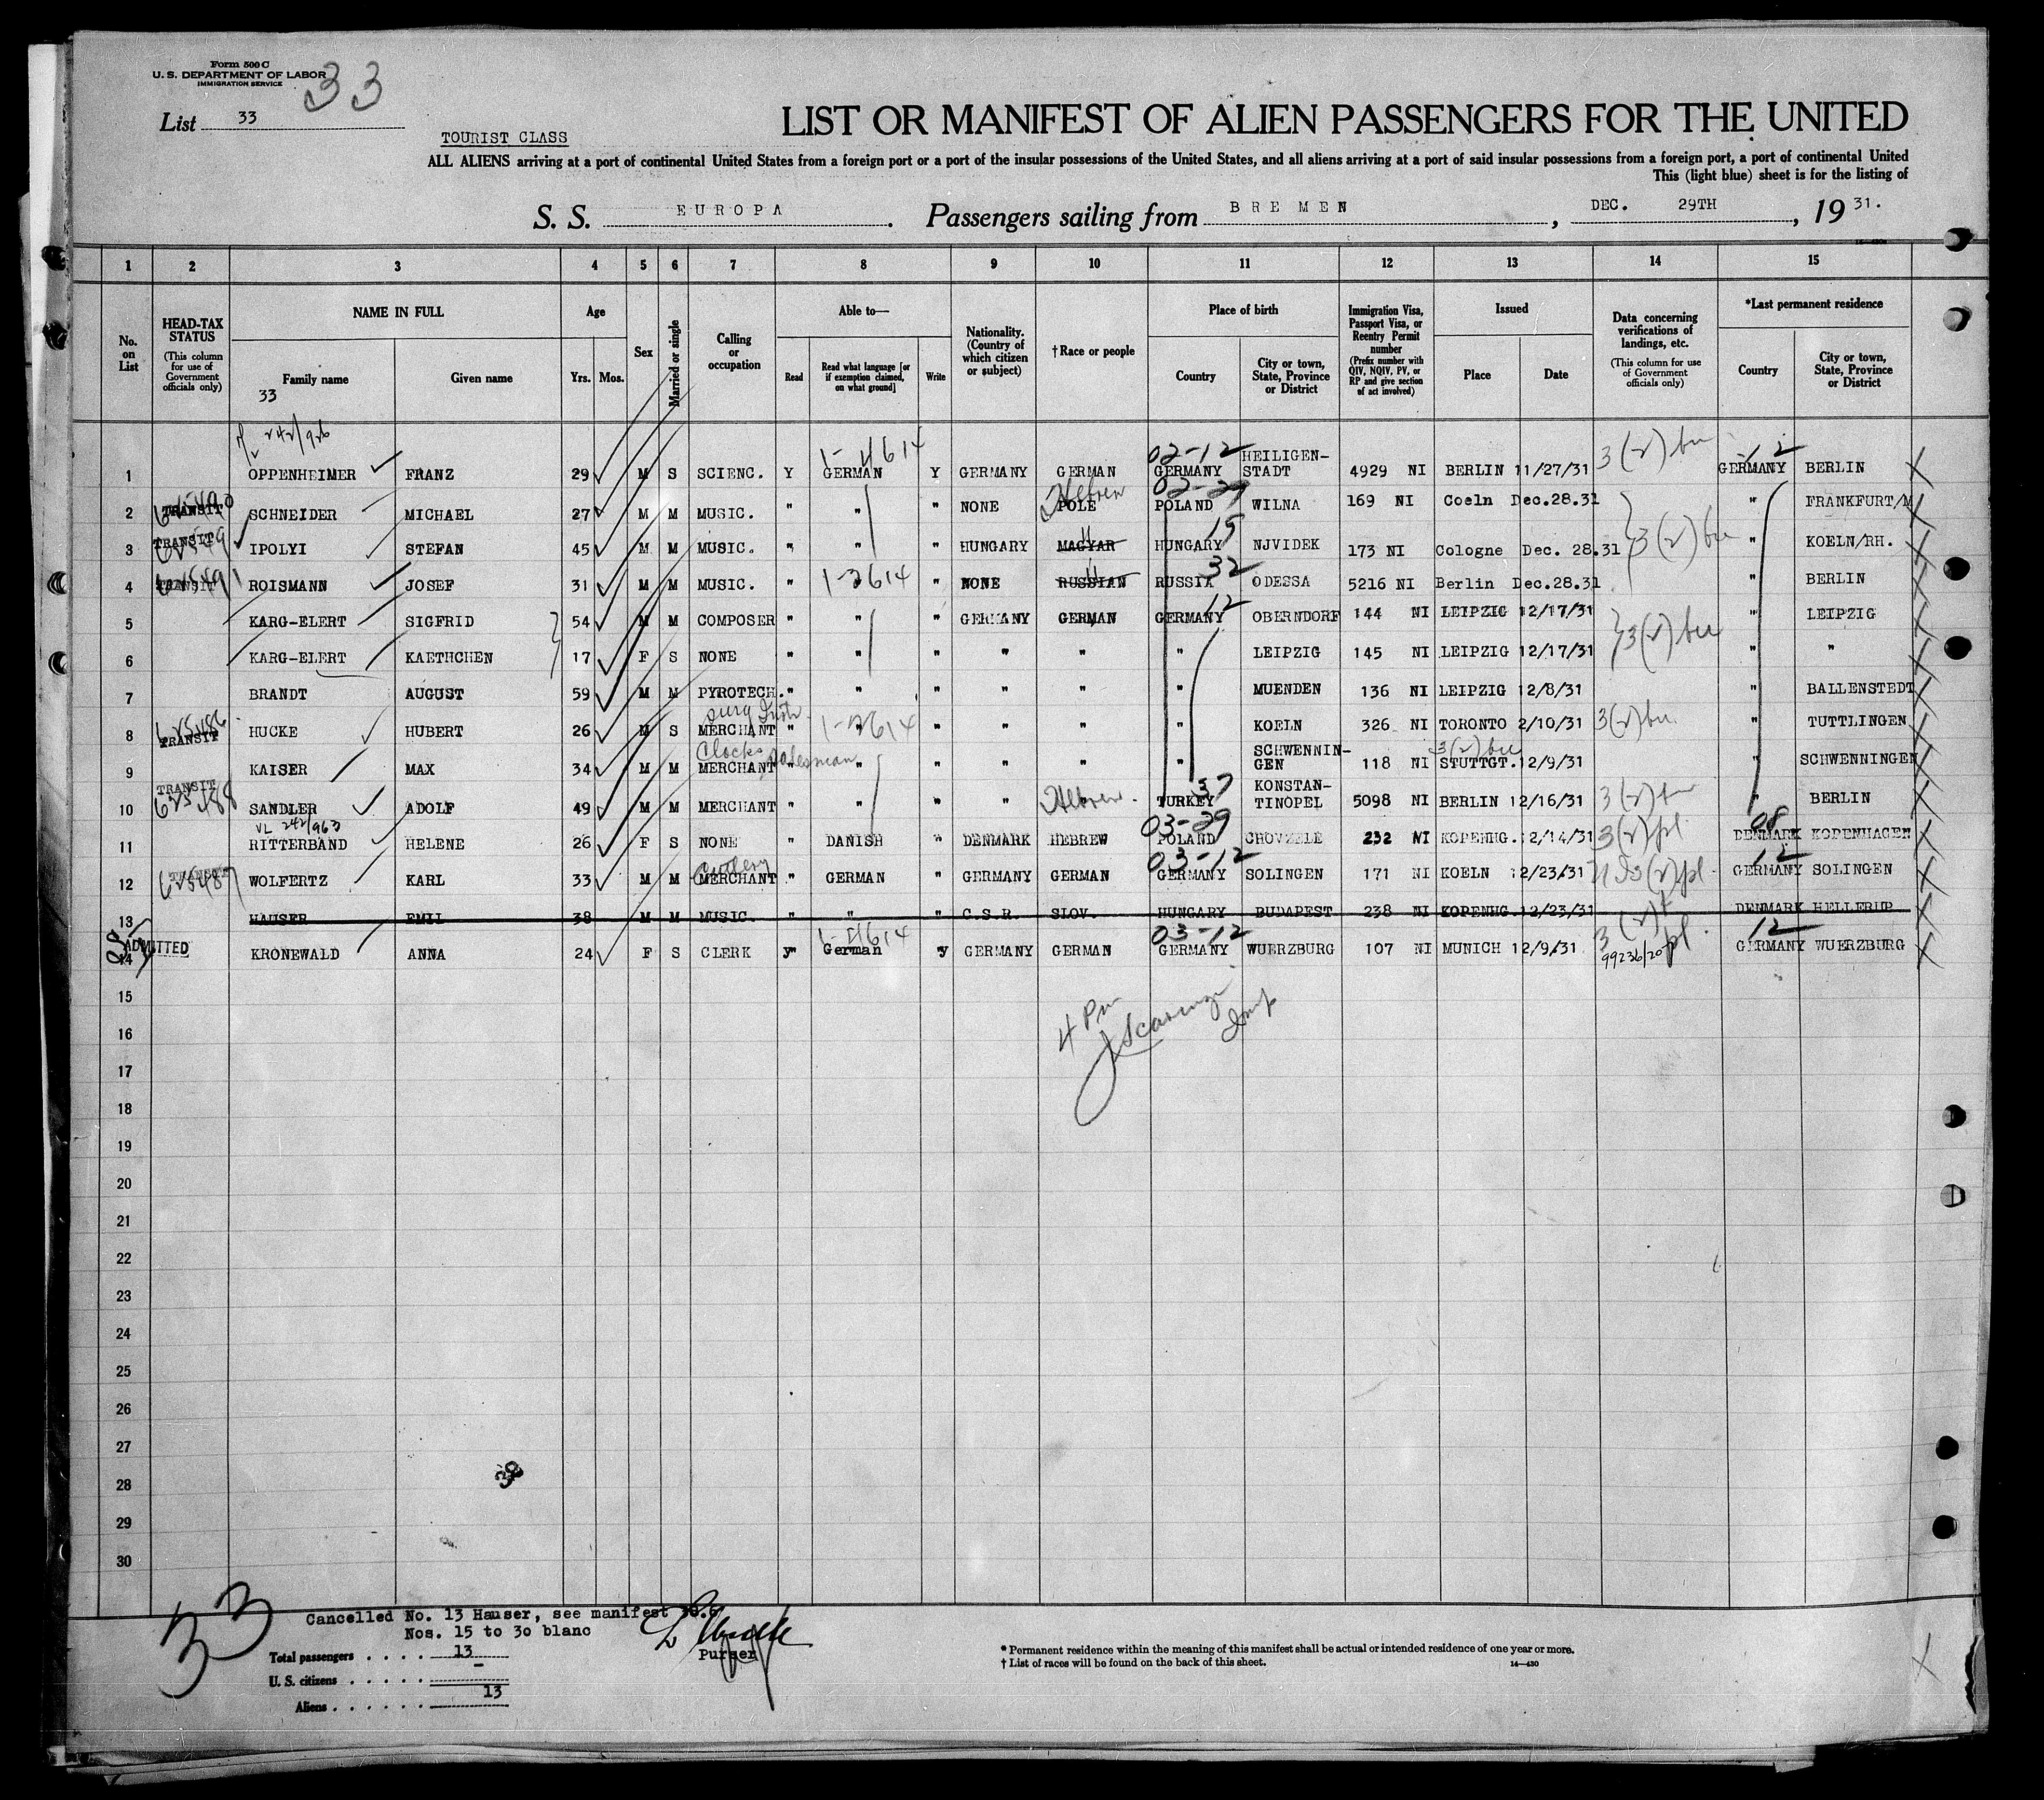 Form 500 C
U. S. DEPARTMENT OF LABOR
IMMIGRATION SERVICE
33
List 33
TOURIST CLASS
LIST OR MANIFEST OF ALIEN PASSENGERS FOR THE UNITED
ALL ALIENS arriving at a port of continental United States from a foreign port or a port of the insular possessions of the United States, and all aliens arriving at a port of said insular possessions from a foreign port, a port of continental United
This (light blue) sheet is for the listing of
S. S. EUROPA. Passengers sailing from BREMEN, DEC. 29TH, 19 31.
1 2 3 4 5 6 7 8 9 10 11 12 13 14 15
No. on List
HEAD-TAX STATUS (This column for use of Government officials only)
NAME IN FULL
Family name Given name
33
Age
Yrs. Mos.
Sex
Married or single
Calling or occupation
Able to—
Read Read what language [or if exemption claimed, on what ground] Write
Nationality. (Country of which citizen or subject)
†Race or people
Place of birth
Country City or town, State, Province or District
Immigration Visa, Passport Visa, or Reentry Permit number (Prefix number with QIV, NQIV, PV, or RP and give section of act involved)
Issued
Place Date
Data concerning verifications of landings, etc. (This column for use of Government officials only)
*Last permanent residence
Country City or town, State, Province or District
242/926 1-4614 02-12 12
1 OPPENHEIMER FRANZ 29 M S SCIENC. Y GERMAN Y GERMANY GERMAN GERMANY HEILIGEN-STADT 4929 NI BERLIN 11/27/31 3(2) GERMANY BERLIN
Hebrew 02-29
2 TRANSIT SCHNEIDER MICHAEL 27 M M MUSIC. " " " NONE POLE POLAND WILNA 169 NI Coeln Dec.28.31 " FRANKFURT/M
15
3 TRANSIT IPOLYI STEFAN 45 M M MUSIC. " " " HUNGARY MAGYAR HUNGARY NJVIDEK 173 NI Cologne Dec. 28.31 3(2) " KOELN/RH.
1-3614 32
4 TRANSIT ROISMANN JOSEF 31 M M MUSIC. " " " NONE RUSSIAN RUSSIA ODESSA 5216 NI Berlin Dec.28.31 " BERLIN
12
5 KARG-ELERT SIGFRID 54 M M COMPOSER " " " GERMANY GERMAN GERMANY OBERNDORF 144 NI LEIPZIG 12/17/31 3(2) " LEIPZIG
6 KARG-ELERT KAETHCHEN 17 F S NONE " " " " " " LEIPZIG 145 NI LEIPZIG 12/17/31 " "
7 BRANDT AUGUST 59 M M PYROTECH. " " " " " " MUENDEN 136 NI LEIPZIG 12/8/31 " BALLENSTEDT
625486
8 TRANSIT HUCKE HUBERT 26 M S MERCHANT " " " " " " KOELN 326 NI TORONTO 2/10/31 3(2) " TUTTLINGEN
Clocks salesman
9 KAISER MAX 34 M M MERCHANT " " " " " " SCHWENNIN-GEN 118 NI STUTTGT. 12/9/31 " SCHWENNINGEN
625488 Hebrew. 37
10 TRANSIT SANDLER ADOLF 49 M M MERCHANT " " " " " TURKEY KONSTAN-TINOPEL 5098 NI BERLIN 12/16/31 3(2) " BERLIN
242/963 03-29 08
11 RITTERBAND HELENE 26 F S NONE " DANISH " DENMARK HEBREW POLAND CHOVZELE 232 NI KOPENHG. 12/14/31 3(2)pl DENMARK KOPENHAGEN
625487 Cutlery 03-12 12
12 TRANSIT WOLFERTZ KARL 33 M M MERCHANT " GERMAN " GERMANY GERMAN GERMANY SOLINGEN 171 NI KOELN 12/23/31 3(2)pl GERMANY SOLINGEN
13 HAUSER EMIL 38 M M MUSIC. " " " C.S.R. SLOV. HUNGARY BUDAPEST 238 NI KOPENHG. 12/23/31 DENMARK HELLERUP
03-12 12
14 ADMITTED KRONEWALD ANNA 24 F S CLERK y" German y GERMANY GERMAN GERMANY WUERZBURG 107 NI MUNICH 12/9/31 3(2)pl 99236/20 GERMANY WUERZBURG
15
4 Pm
16
17
18
19
20
21
22
23
24
25
26
27
28
29
30
33
Cancelled No. 13 Hauser, see manifest
Nos. 15 to 30 blanc
Total passengers . . . . 13
U. S. citizens . . . . . -
Aliens . . . . . . 13
Purser
* Permanent residence within the meaning of this manifest shall be actual or intended residence of one year or more.
† List of races will be found on the back of this sheet.
14—430